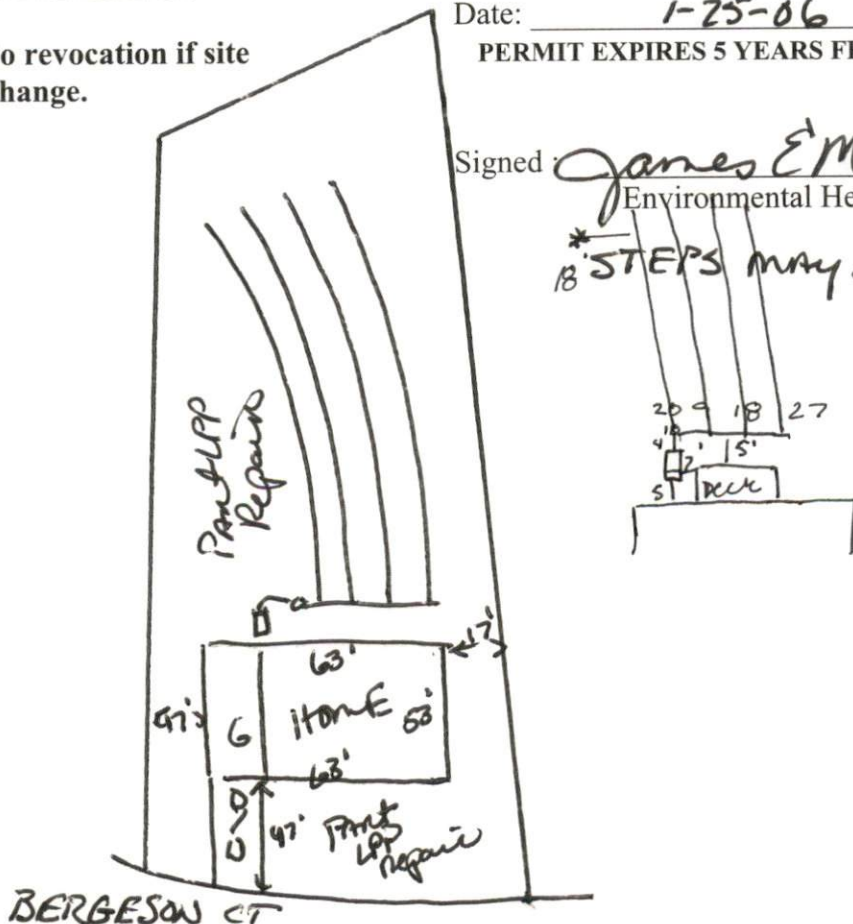 Date: 1-25-06
o revocation if site
hange.
PERMIT EXPIRES 5 YEARS F
Signed : James E M
Environmental He
*
18' STEPS MAY
20 9 18 27
4' 2' 15'
5 Deck
Part LPP
Repair
17'
63'
47' G HOME 53'
63'
D/W 47' Part
LPP
Repair
BERGESON CT